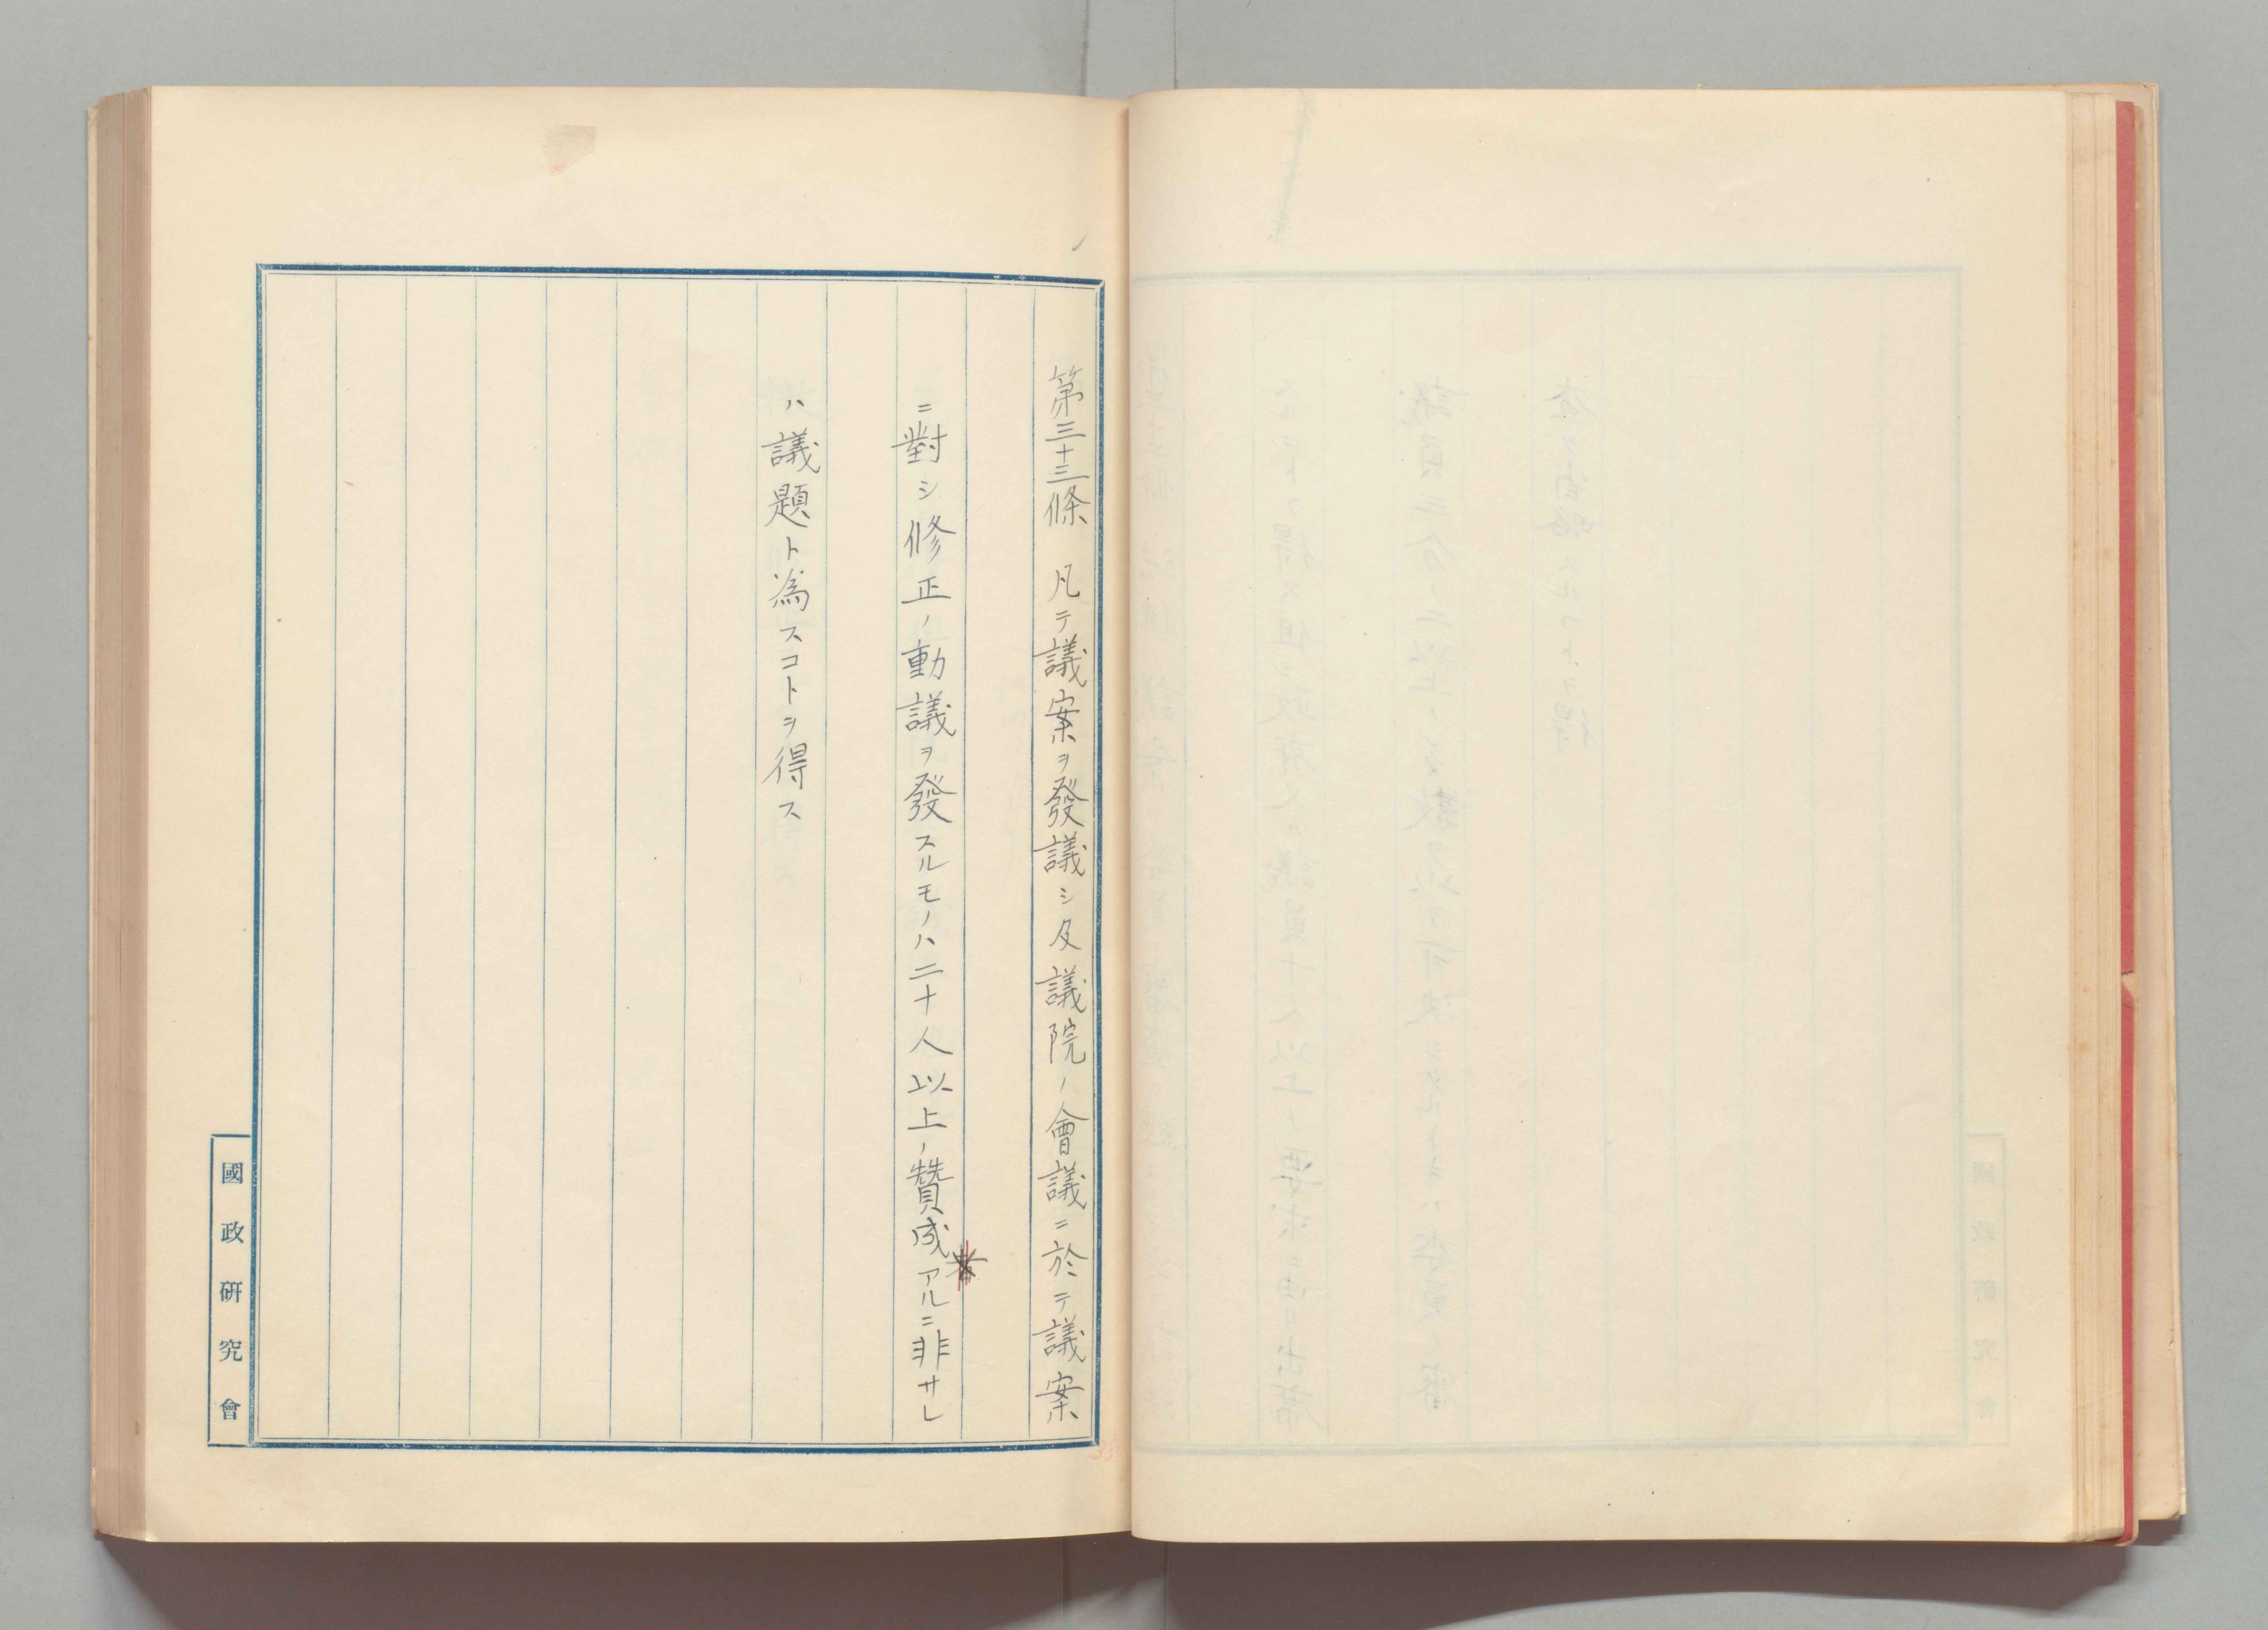 第三十三條　凡テ議案ヲ發議シ及議院ノ會議ニ於テ議案
ニ對シ修正ノ動議ヲ發スルモノハ二十人以上ノ贊成アルニ非サレ
ハ議題ト為スコトヲ得ス
國政研究會